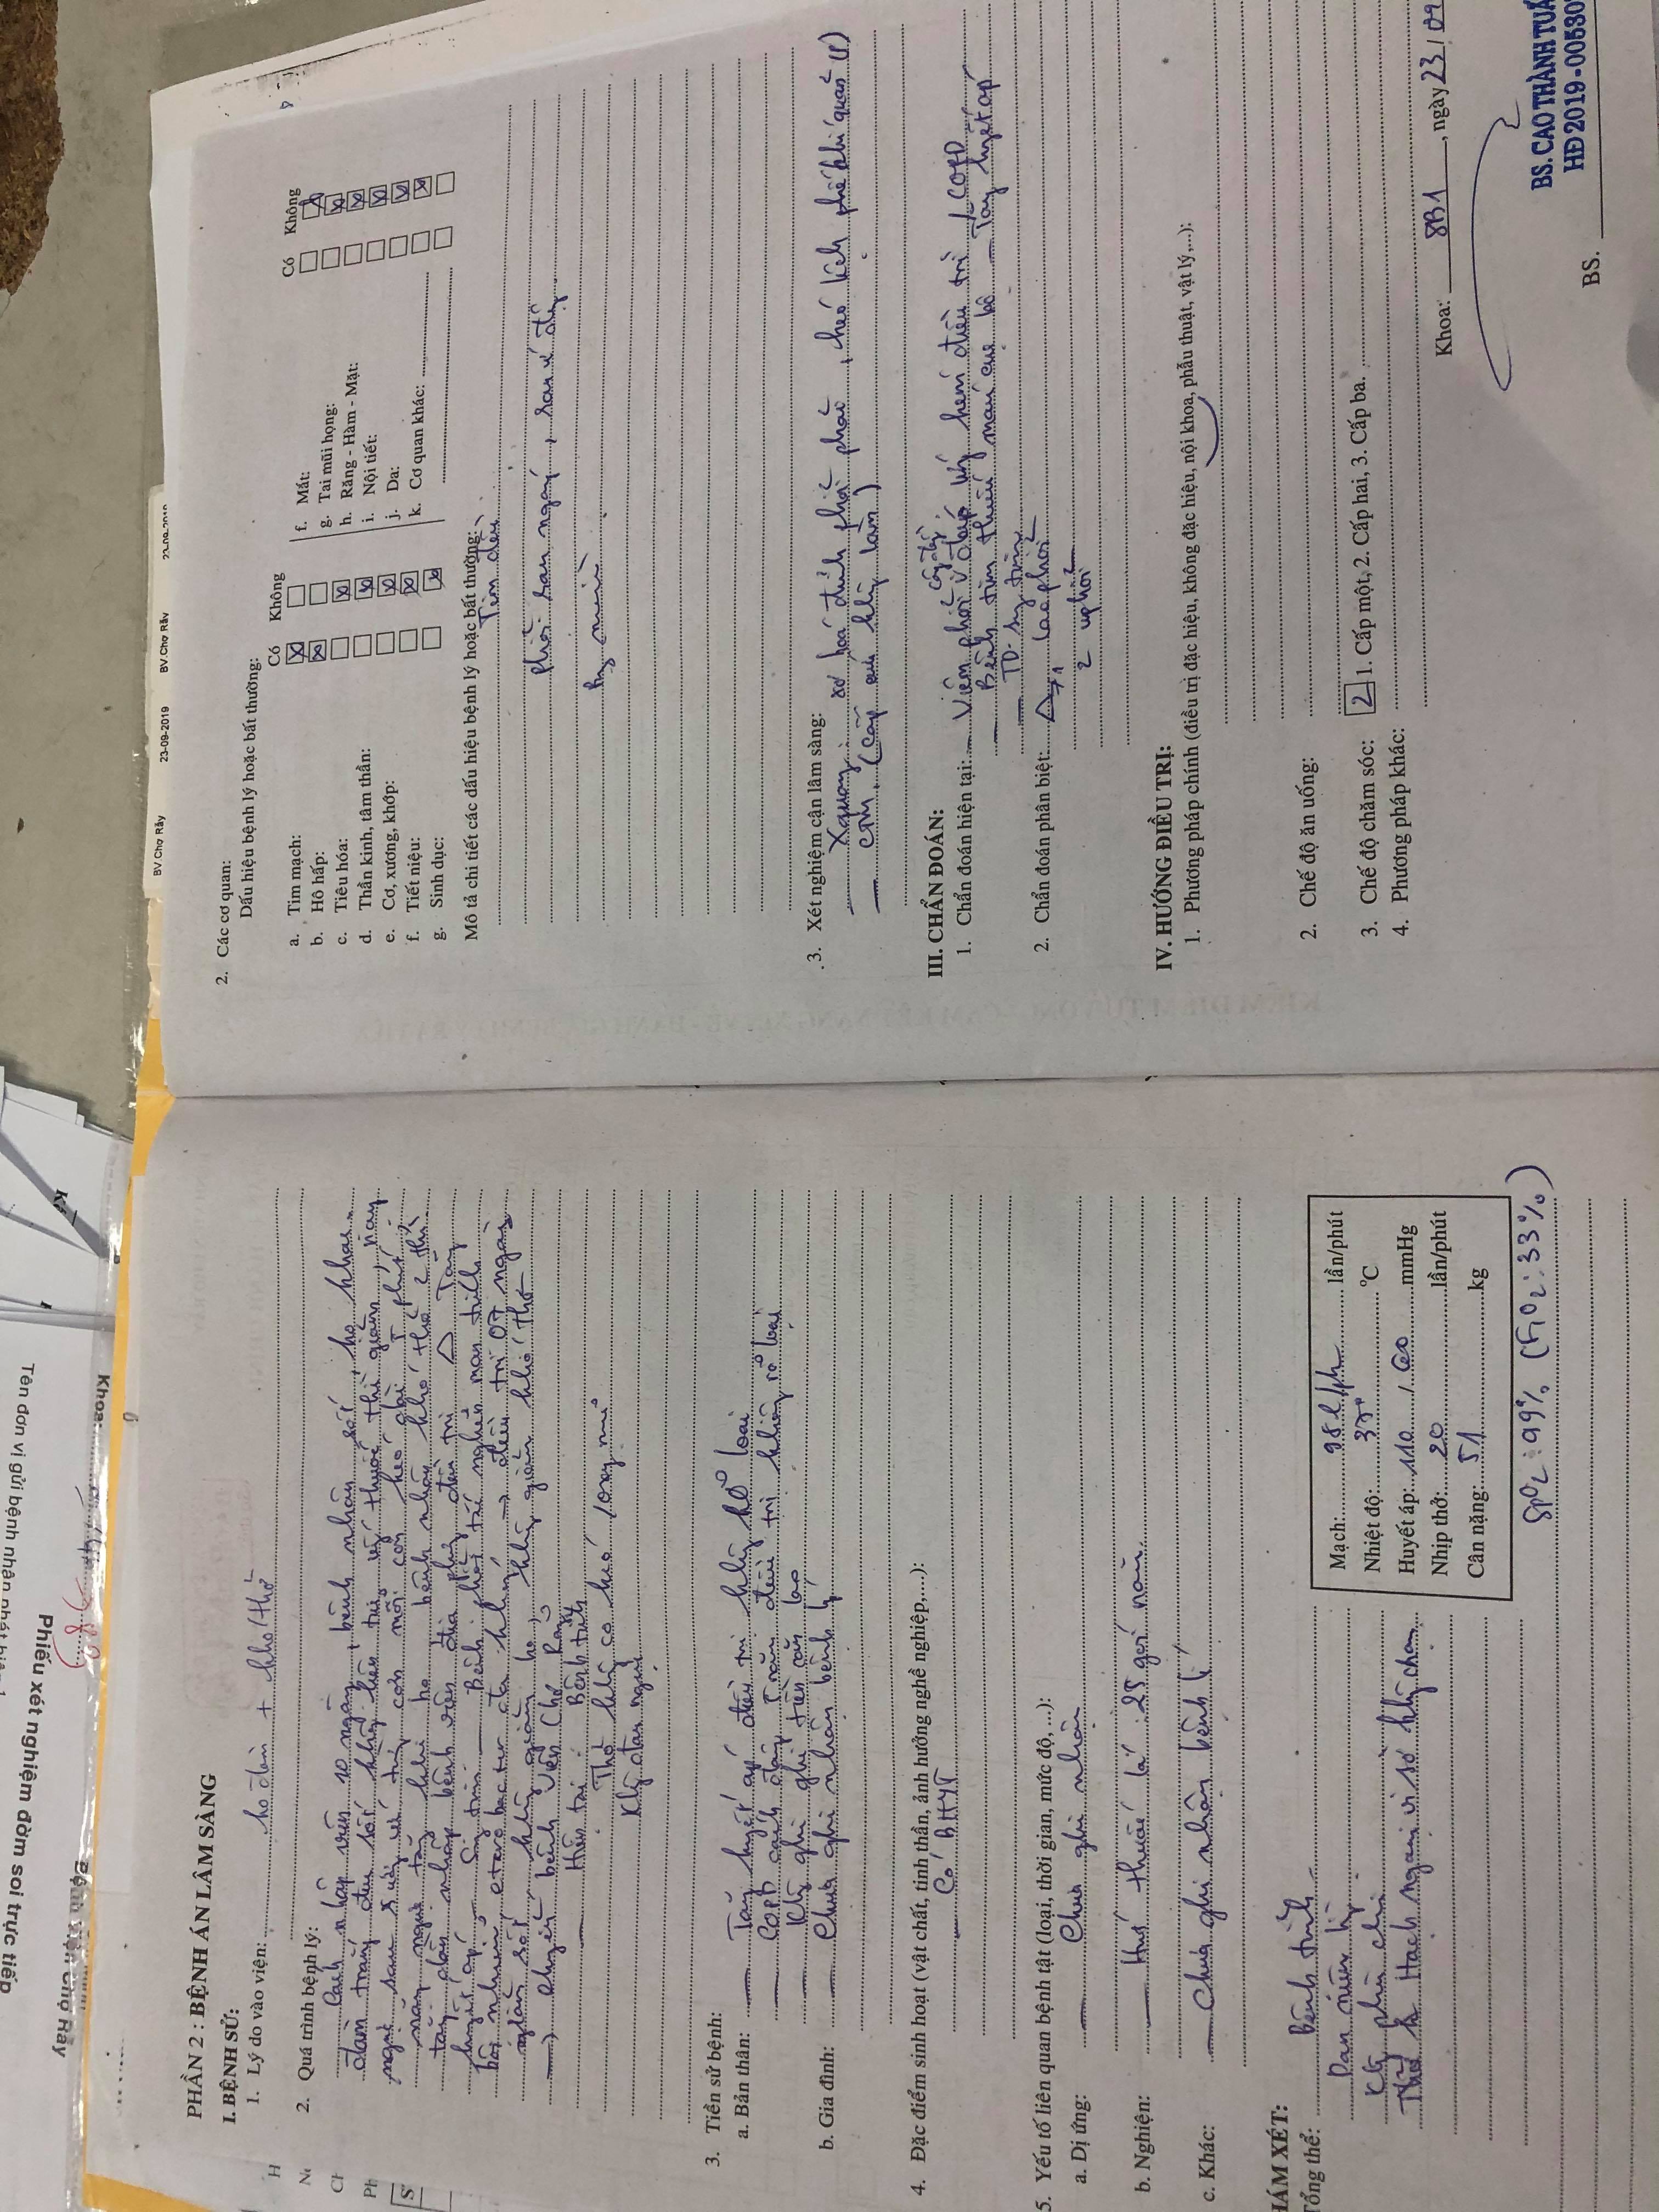 Bệnh viện Chợ Rẫy
Phiếu xét nghiệm đờm soi trực tiếp
Tên đơn vị gửi bệnh nhân
Khoa:
BV.Chợ Rẫy 23-09-2019 BV.Chợ Rẫy 23-09-2019
PHẦN 2 : BỆNH ÁN LÂM SÀNG
I. BỆNH SỬ:
1. Lý do vào viện: ho đàm + khó thở
2. Quá trình bệnh lý:
Cách nhập viện 10 ngày, bệnh nhân sốt, ho khạc
đàm trắng đục sốt không liên tục, uống thuốc thì giảm, nay
ngực sau xương ức từng cơn mỗi cơn kéo dài 5 phút,
nặng ngực tăng khi ho, bệnh nhân khó thở 2 thì
tăng dần nhập bệnh viện địa phương điều trị Δ Tăng
huyết áp – Suy tim – Bệnh phổi tắc nghẽn mạn tính
bội nhiễm, đa kháng → điều trị 07 ngày
giảm sốt, không giảm ho, không giảm khó thở
→ chuyển bệnh viện Chợ Rẫy
– Hiện tại : Bệnh tỉnh
Thở không co kéo / oxy mũi
Không đau ngực
3. Tiền sử bệnh:
a. Bản thân: – Tăng huyết áp điều trị không rõ loại
– COPD cách đây 5 năm điều trị không rõ loại
– Không ghi ghi tiền căn lao
b. Gia đình: – Chưa ghi nhận bệnh lý
4. Đặc điểm sinh hoạt (vật chất, tinh thần, ảnh hưởng nghề nghiệp,....):
– Có BHYT
5. Yếu tố liên quan bệnh tật (loại, thời gian, mức độ, ...):
a. Dị ứng: – Chưa ghi nhận
b. Nghiện: – Hút thuốc lá : 25 gói năm.
c. Khác: – Chưa ghi nhận bệnh lí
HÁM XÉT:
Tổng thể: Bệnh tỉnh
Da niêm
Không phù chi
Hạch ngoại vi sờ không chạm
Mạch: 98 l/ph lần/phút
Nhiệt độ: 37° °C
Huyết áp: 110 / 60 mmHg
Nhịp thở: 20 lần/phút
Cân nặng: 51 kg
SpO2 : 99% (FiO2 : 33%)
2. Các cơ quan:
Dấu hiệu bệnh lý hoặc bất thường:
Có Không
a. Tim mạch:
b. Hô hấp:
c. Tiêu hóa:
d. Thần kinh, tâm thần:
e. Cơ, xương, khớp:
f. Tiết niệu:
g. Sinh dục:
Có Không
f. Mắt:
g. Tai mũi họng:
h. Răng - Hàm - Mặt:
i. Nội tiết:
j. Da:
k. Cơ quan khác:
Mô tả chi tiết các dấu hiệu bệnh lý hoặc bất thường:
Tim đều
Phổi ran ngáy, ran ứ đọng
Bụng mềm
3. Xét nghiệm cận lâm sàng:
– Xquang : xơ hoá đỉnh phổi phải, kéo lệch phế khí quản (P)
– CTM. (cấp cứu không làm)
III. CHẨN ĐOÁN:
cộng đồng
1. Chẩn đoán hiện tại: – Viêm phổi đáp ứng kém điều trị / COPD
– Bệnh tim thiếu máu cục bộ – Tăng huyết áp
– TD suy tim
2. Chẩn đoán phân biệt: Δ≠ 1 Lao phổi
2 u phổi
IV. HƯỚNG ĐIỀU TRỊ:
1. Phương pháp chính (điều trị đặc hiệu, không đặc hiệu, nội khoa, phẫu thuật, vật lý,...):
2. Chế độ ăn uống:
3. Chế độ chăm sóc: 2 1. Cấp một, 2. Cấp hai, 3. Cấp ba.
4. Phương pháp khác:
Khoa: 8B1, ngày 23 / 09
BS. CAO THÀNH TUẤ
HĐ 2019-00530
BS.